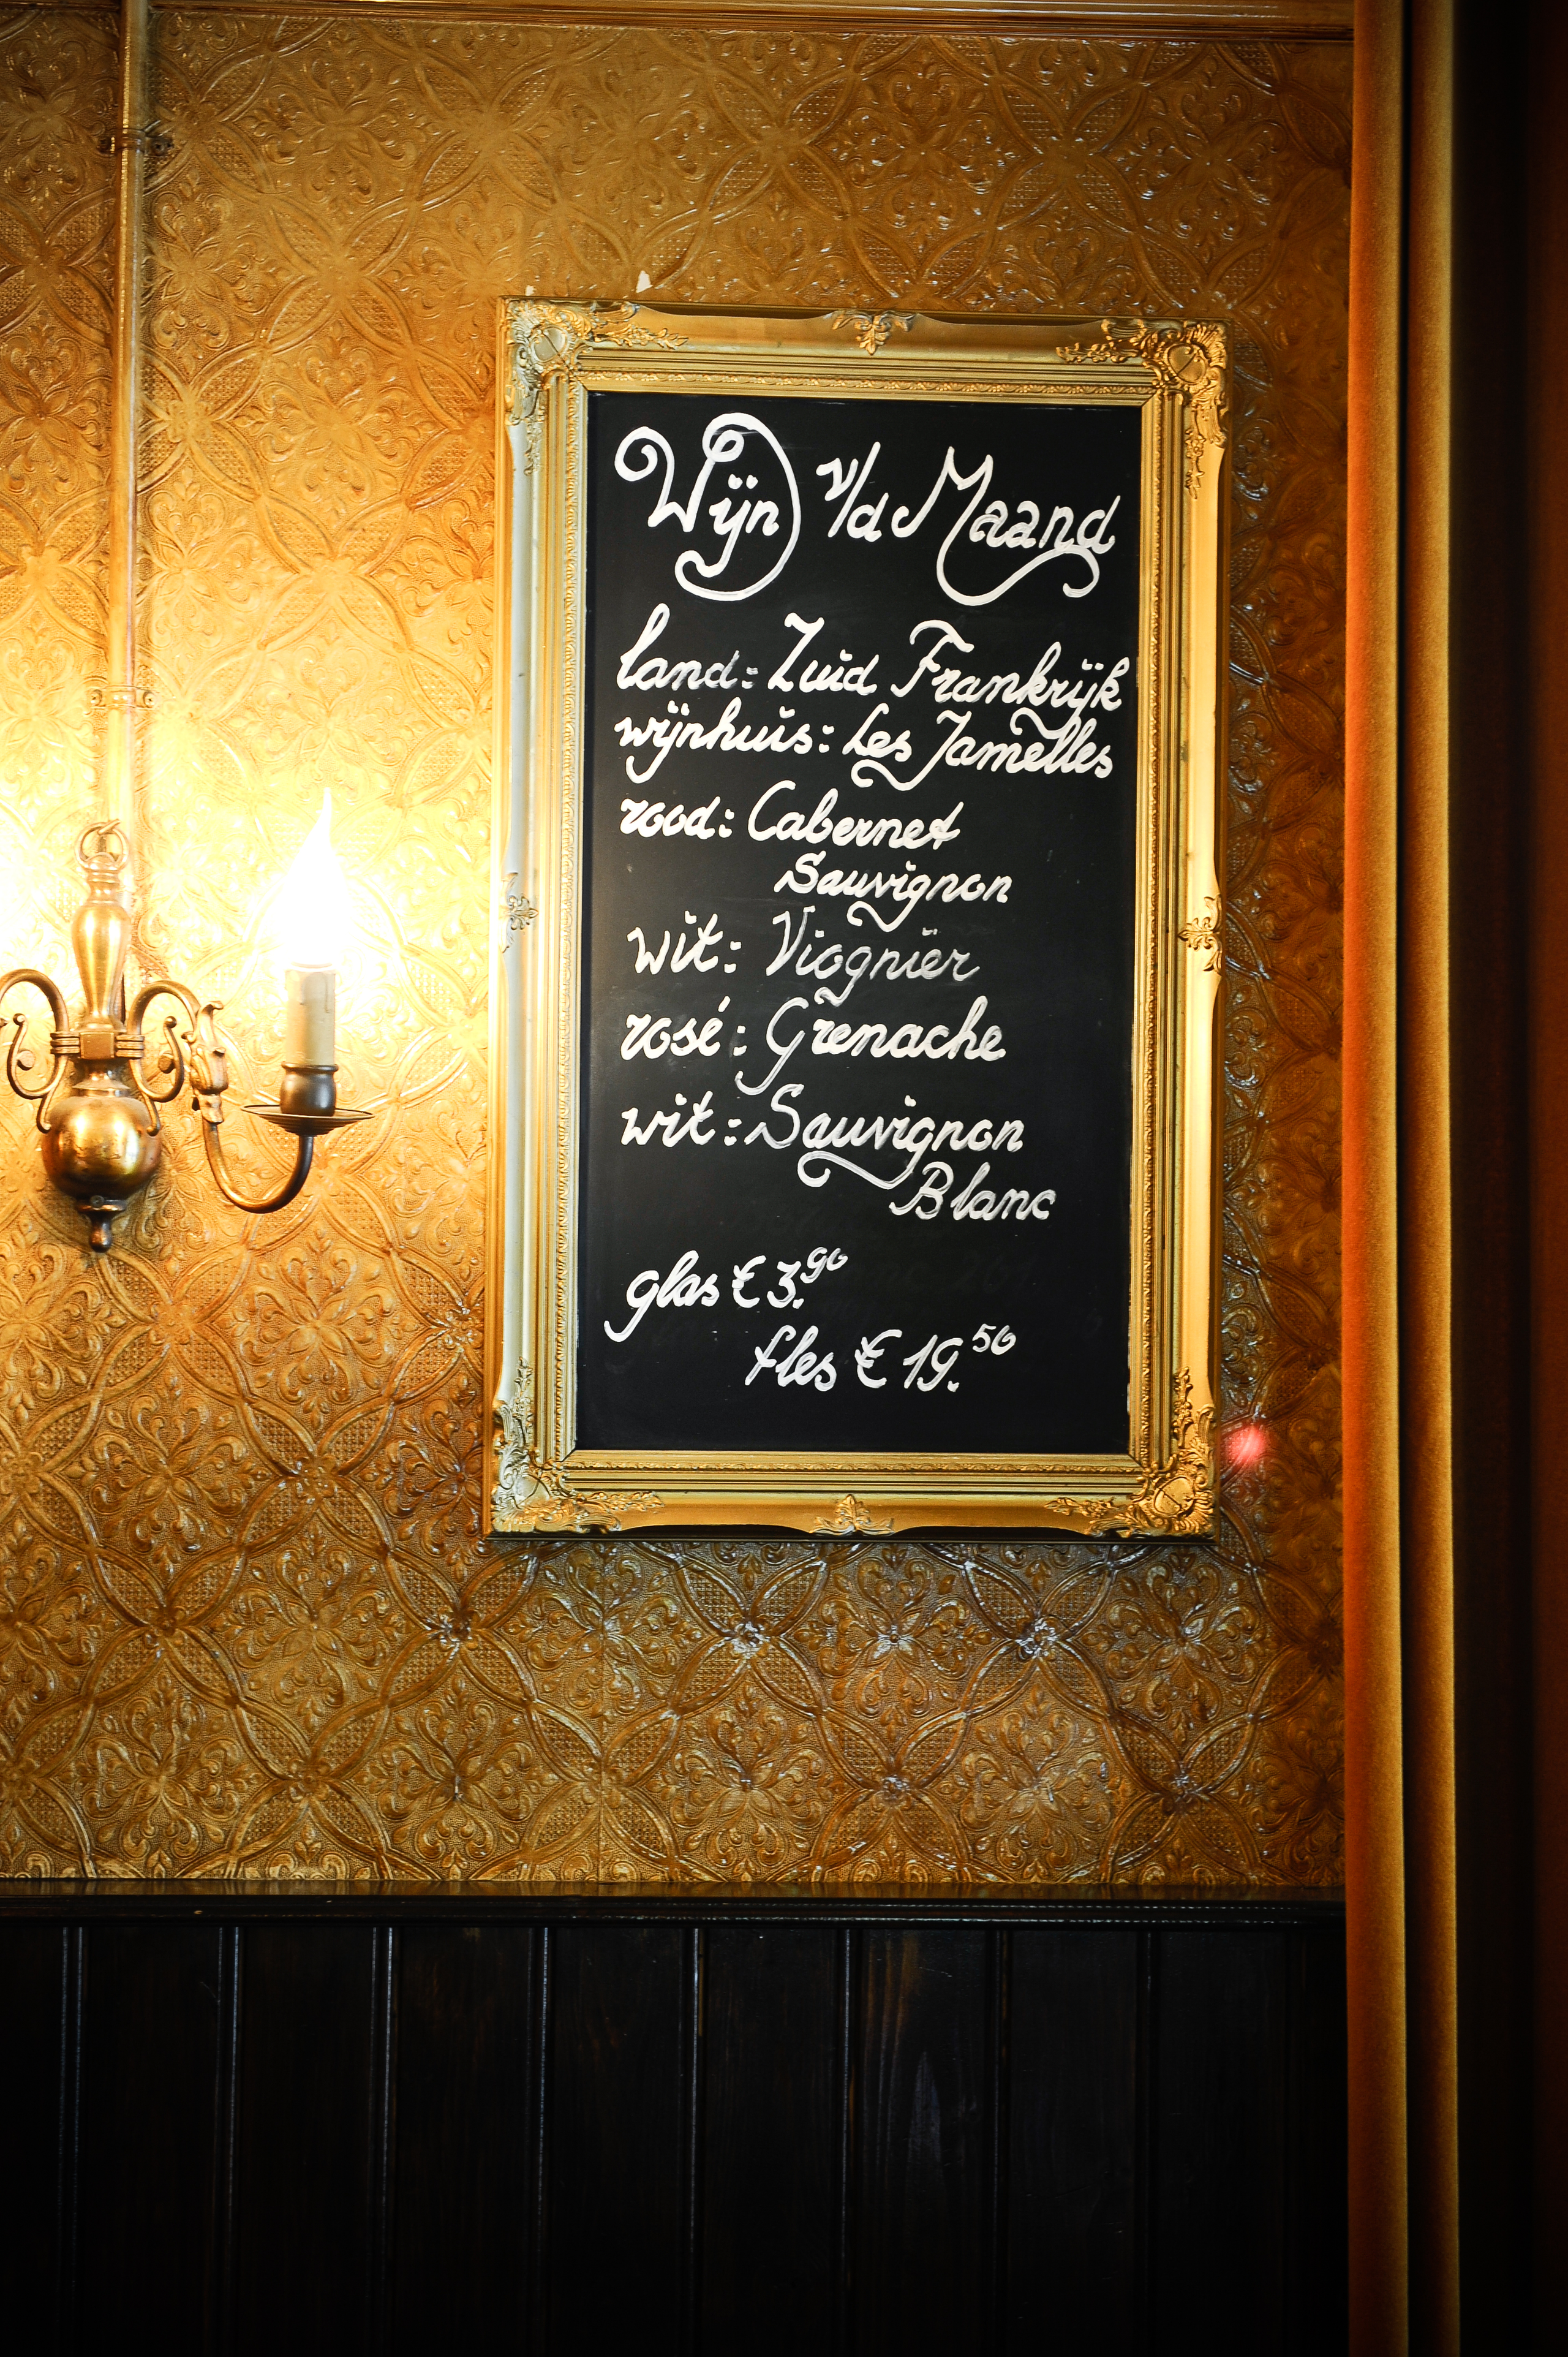 Wijn v/d Maand
land: Zuid Frankrijk
wijnhuis: Les Jamelles
rood: Cabernet
Sauvignon
wit: Viognier
rosé: Grenache
wit: Sauvignon
Blanc
glas € 3.90
fles € 19.50